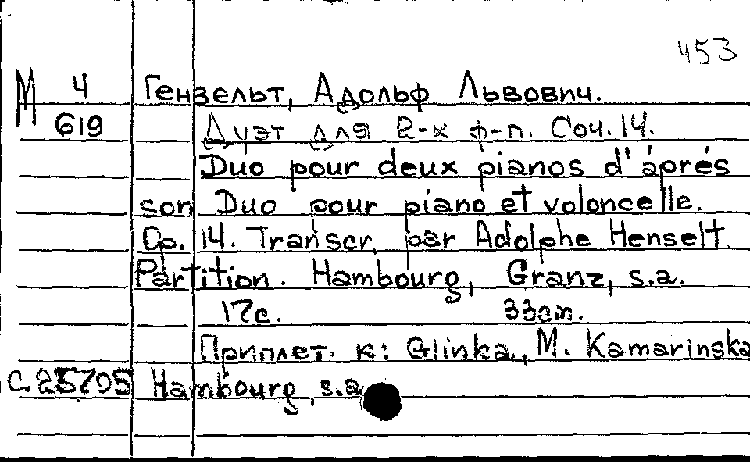 453
М 4 Гензельт, Адольф Львович.
619 Дуэт для 2-х ф-п. Соч. 14.
Duo pour deux pianos d'áprés
son Duo pour piano et voloncelle.
Op. 14. Transcr. par Adolphe Henselt
Partition. Hambourg, Granz, s.a.
17с. 33см.
Приплет. к: Glinka, M. Kamarinska
С 25705 Hambourg, s.a.